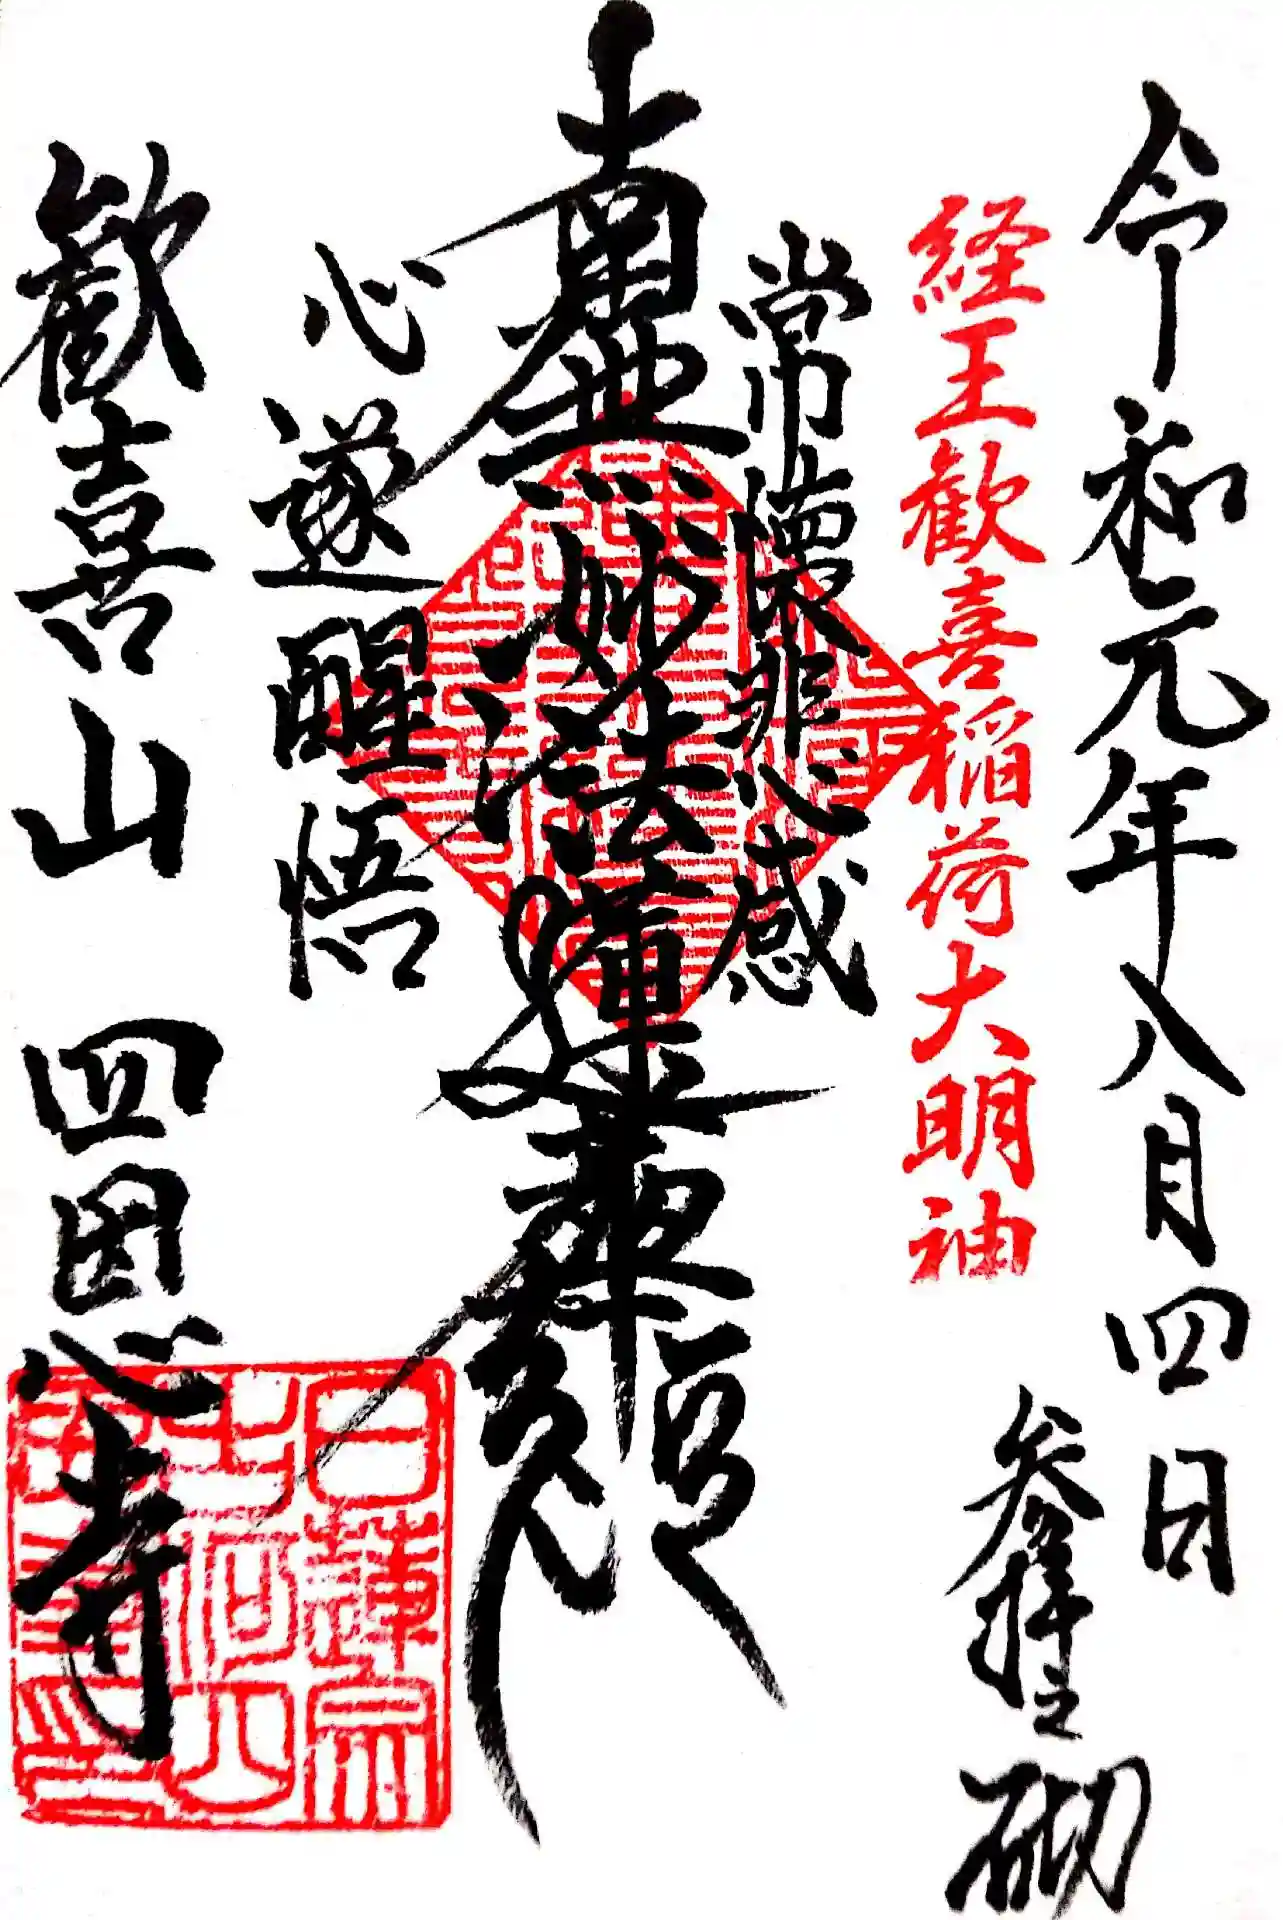 令和元年八月四日
参拝之砌
経王歓喜稲荷大明神
常懐悲感
南無妙法蓮華経
心遂醒悟
歓喜山 四恩寺
日蓮宗